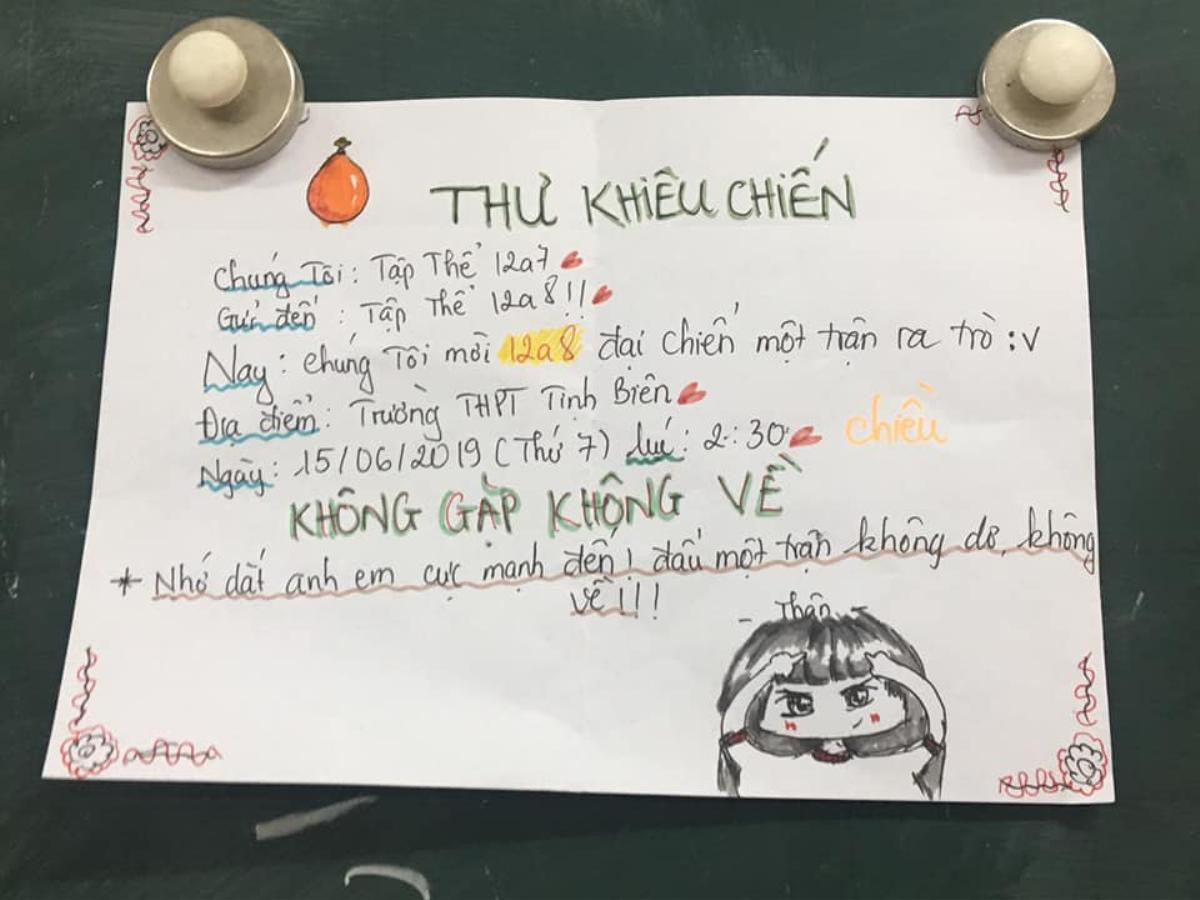 THƯ KHIÊU CHIẾN
Chúng Tôi : Tập Thể 12a7
Gửi đến : Tập Thể 12a8!!
Nay : chúng Tôi mời 12a8 đại chiến một trận ra trò :v
Địa điểm : Trường THPT Tịnh Biên
Ngày : 15/06/2019 (Thứ 7) lúc : 2:30 chiều
KHÔNG GẶP KHÔNG VỀ
* Nhớ dắt anh em cực mạnh đến! đấu một trận không dơ, không
về!!!
- Thân -